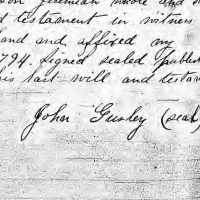 and
d testament in witness
hand and affixed my
1794. Signed sealed publish
his last will and testam
John Gusley (seal)